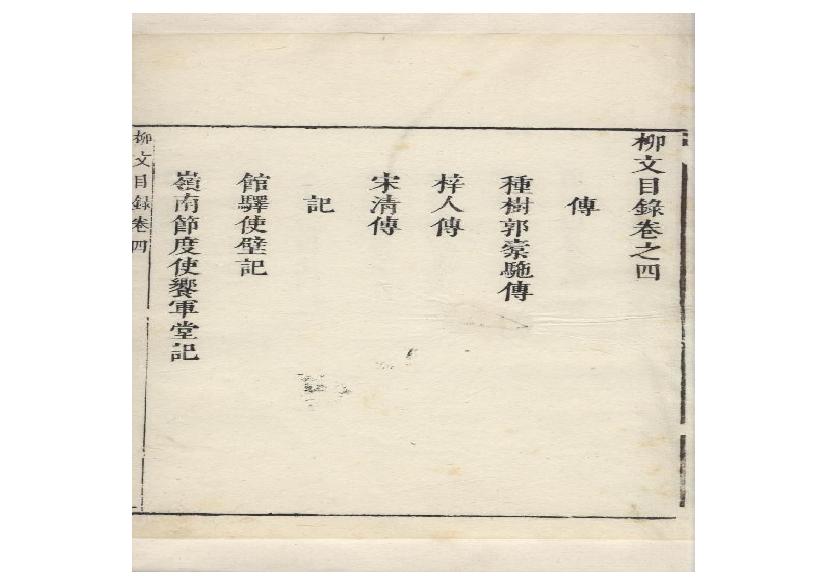 柳文目錄卷之四
傳
種樹郭槖駞傳
梓人傳
宋清傳
記
館驛使壁記
嶺南節度使饗軍堂記
柳文目錄卷四